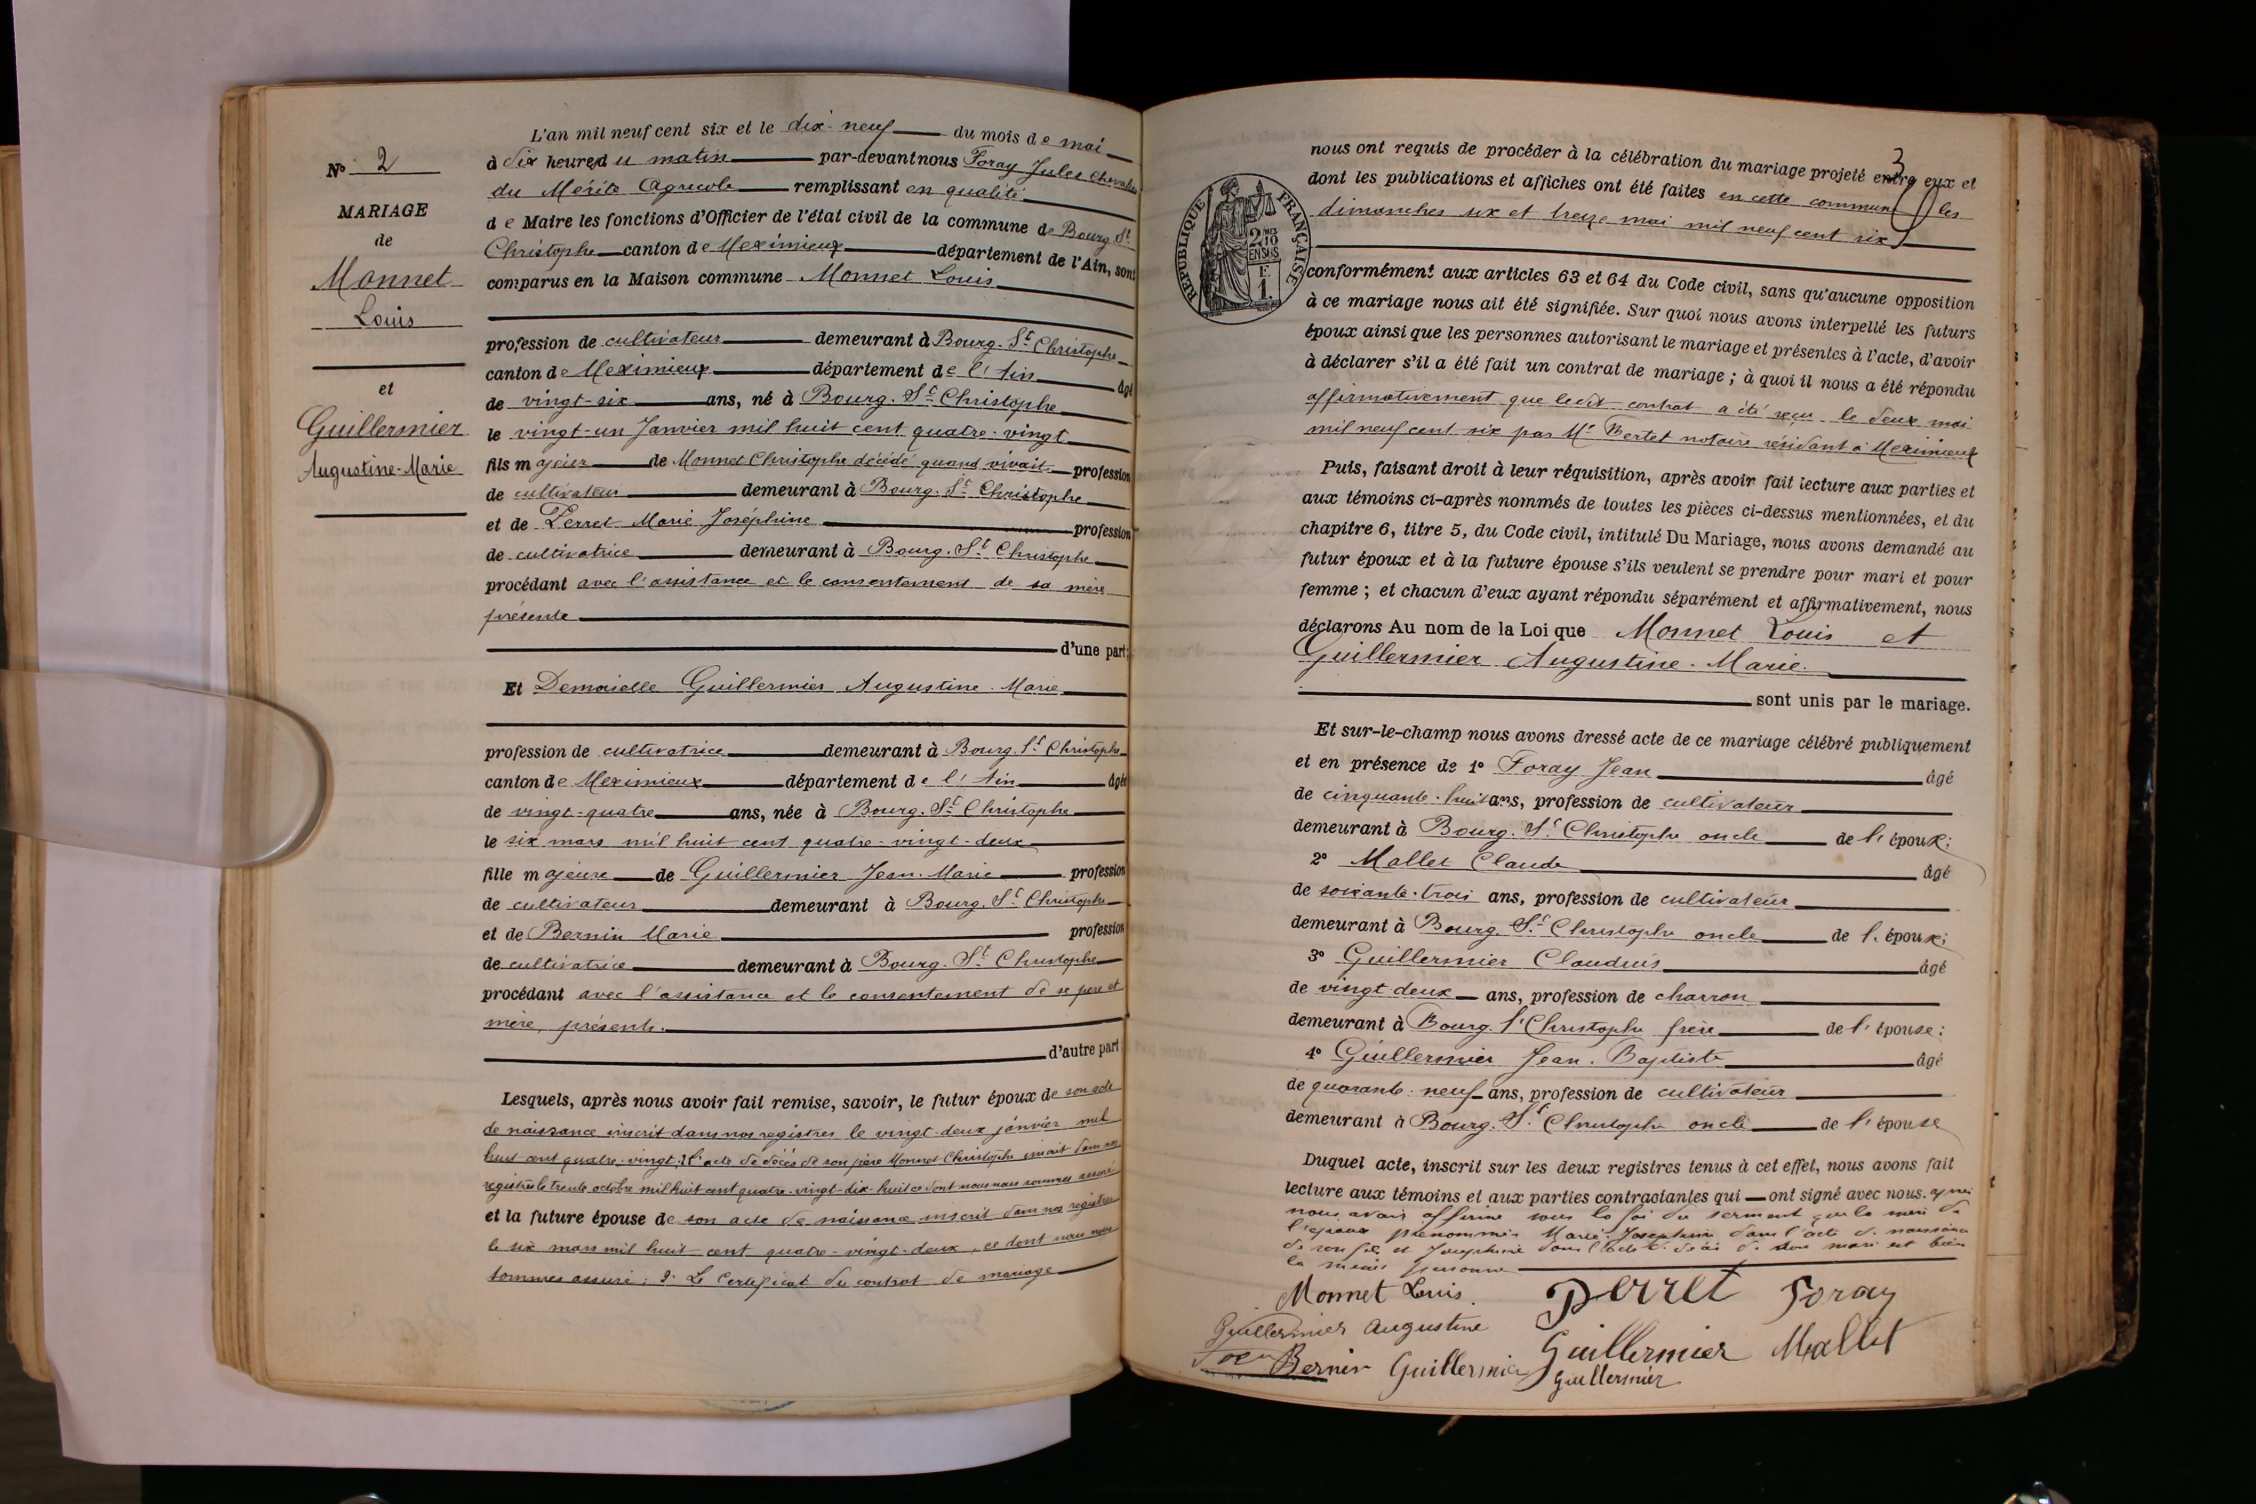 N° 2
MARIAGE
de
Monnet
Louis
et
Guillermier
Augustine-Marie
L'an mil neuf cent six et le dix-neuf du mois de mai
à dix heures du matin par-devant nous Foray Jules chevalier
du Mérite Agricole remplissant en qualité
de Maire les fonctions d'Officier de l'état civil de la commune de Bourg St
Christophe canton de Meximieux département de l'Ain, sont
comparus en la Maison commune Monnet Louis
profession de cultivateur demeurant à Bourg. St Christophe
canton de Meximieux département de l'Ain âgé
de vingt-six ans, né à Bourg. St Christophe
le vingt-un Janvier mil huit cent quatre-vingt
fils majeur de Monnet Christophe décédé quand vivait profession
de cultivateur demeurant à Bourg. St Christophe
et de Perret Marie Joséphine profession
de cultivatrice demeurant à Bourg. St Christophe
procédant avec l'assistance et le consentement de sa mère
présente
d'une part;
Et Demoiselle Guillermier Augustine-Marie
profession de cultivatrice demeurant à Bourg. St Christophe
canton de Meximieux département de l'Ain âgée
de vingt-quatre ans, née à Bourg. St Christophe
le six mars mil huit cent quatre-vingt-deux
fille majeure de Guillermier Jean-Marie profession
de cultivateur demeurant à Bourg. St Christophe
et de Bernin Marie profession
de cultivatrice demeurant à Bourg. St Christophe
procédant avec l'assistance et le consentement de se père et
mère, présents.
d'autre part
Lesquels, après nous avoir fait remise, savoir, le futur époux de son acte
de naissance inscrit dans nos registres le vingt-deux janvier mil
huit cent quatre-vingt; 2° l'acte de décès de son père Monnet Christophe inscrit dans nos
registres le trente octobre mil huit cent quatre-vingt-dix-huit ce dont nous nous sommes assuré
et la future épouse de son acte de naissance inscrit dans nos registres
le six mars mil huit cent quatre-vingt-deux, ce dont nous nous
sommes assuré; 3° Le Certificat du contrat de mariage
3
RÉPUBLIQUE FRANÇAISE
2/10 EN SUS
F. 1.
nous ont requis de procéder à la célébration du mariage projeté entre eux et
dont les publications et affiches ont été faites en cette commune les
dimanches six et treize mai mil neuf cent six
conformément aux articles 63 et 64 du Code civil, sans qu'aucune opposition
à ce mariage nous ait été signifiée. Sur quoi nous avons interpellé les futurs
époux ainsi que les personnes autorisant le mariage et présentes à l'acte, d'avoir
à déclarer s'il a été fait un contrat de mariage; à quoi il nous a été répondu
affirmativement que ledit contrat a été reçu le deux mai
mil neuf cent six par Me Bertet notaire résidant à Meximieux
Puis, faisant droit à leur réquisition, après avoir fait lecture aux parties et
aux témoins ci-après nommés de toutes les pièces ci-dessus mentionnées, et du
chapitre 6, titre 5, du Code civil, intitulé Du Mariage, nous avons demandé au
futur époux et à la future épouse s'ils veulent se prendre pour mari et pour
femme; et chacun d'eux ayant répondu séparément et affirmativement, nous
déclarons Au nom de la Loi que Monnet Louis et
Guillermier Augustine-Marie.
sont unis par le mariage.
Et sur-le-champ nous avons dressé acte de ce mariage célébré publiquement
et en présence de 1° Foray Jean âgé
de cinquante-huit ans, profession de cultivateur
demeurant à Bourg. St Christophe oncle de l'époux;
2° Mallet Claude âgé
de soixante-trois ans, profession de cultivateur
demeurant à Bourg. St Christophe oncle de l'époux;
3° Guillermier Claudius âgé
de vingt deux ans, profession de charron
demeurant à Bourg. St Christophe frère de l'épouse;
4° Guillermier Jean-Baptiste âgé
de quarante-neuf ans, profession de cultivateur
demeurant à Bourg. St Christophe oncle de l'épouse
Duquel acte, inscrit sur les deux registres tenus à cet effet, nous avons fait
lecture aux témoins et aux parties contractantes qui ont signé avec nous. après
nous avoir affirmé sous la foi du serment que la mère de
l'époux prénommée Marie-Joséphine dans l'acte de naissance
de son fils et Joséphine dans l'acte de décès de son mari est bien
la même personne
Monnet Louis. Perret Foray
Guillermier Augustine Guillermier Mallet
Bernin Guillermier Guillermier